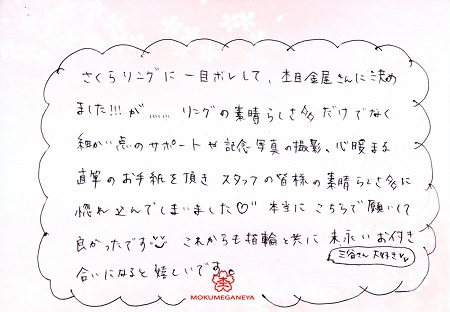 さくらリングに一目ボレして、杢目金屋さんに決め
ました!!!が……リングの素晴らしさ多だけでなく
細かい点のサポートや記念写真の撮影、心暖まる
直筆のお手紙を頂きスタッフの皆様の素晴らしさ多に
惚れ込んでしまいました♡本当にこちらで願いして
良かったです。これからも指輪と共に末永いお付き
合いになると嬉しいです。
三谷さん大好き♡
MOKUMEGANEYA